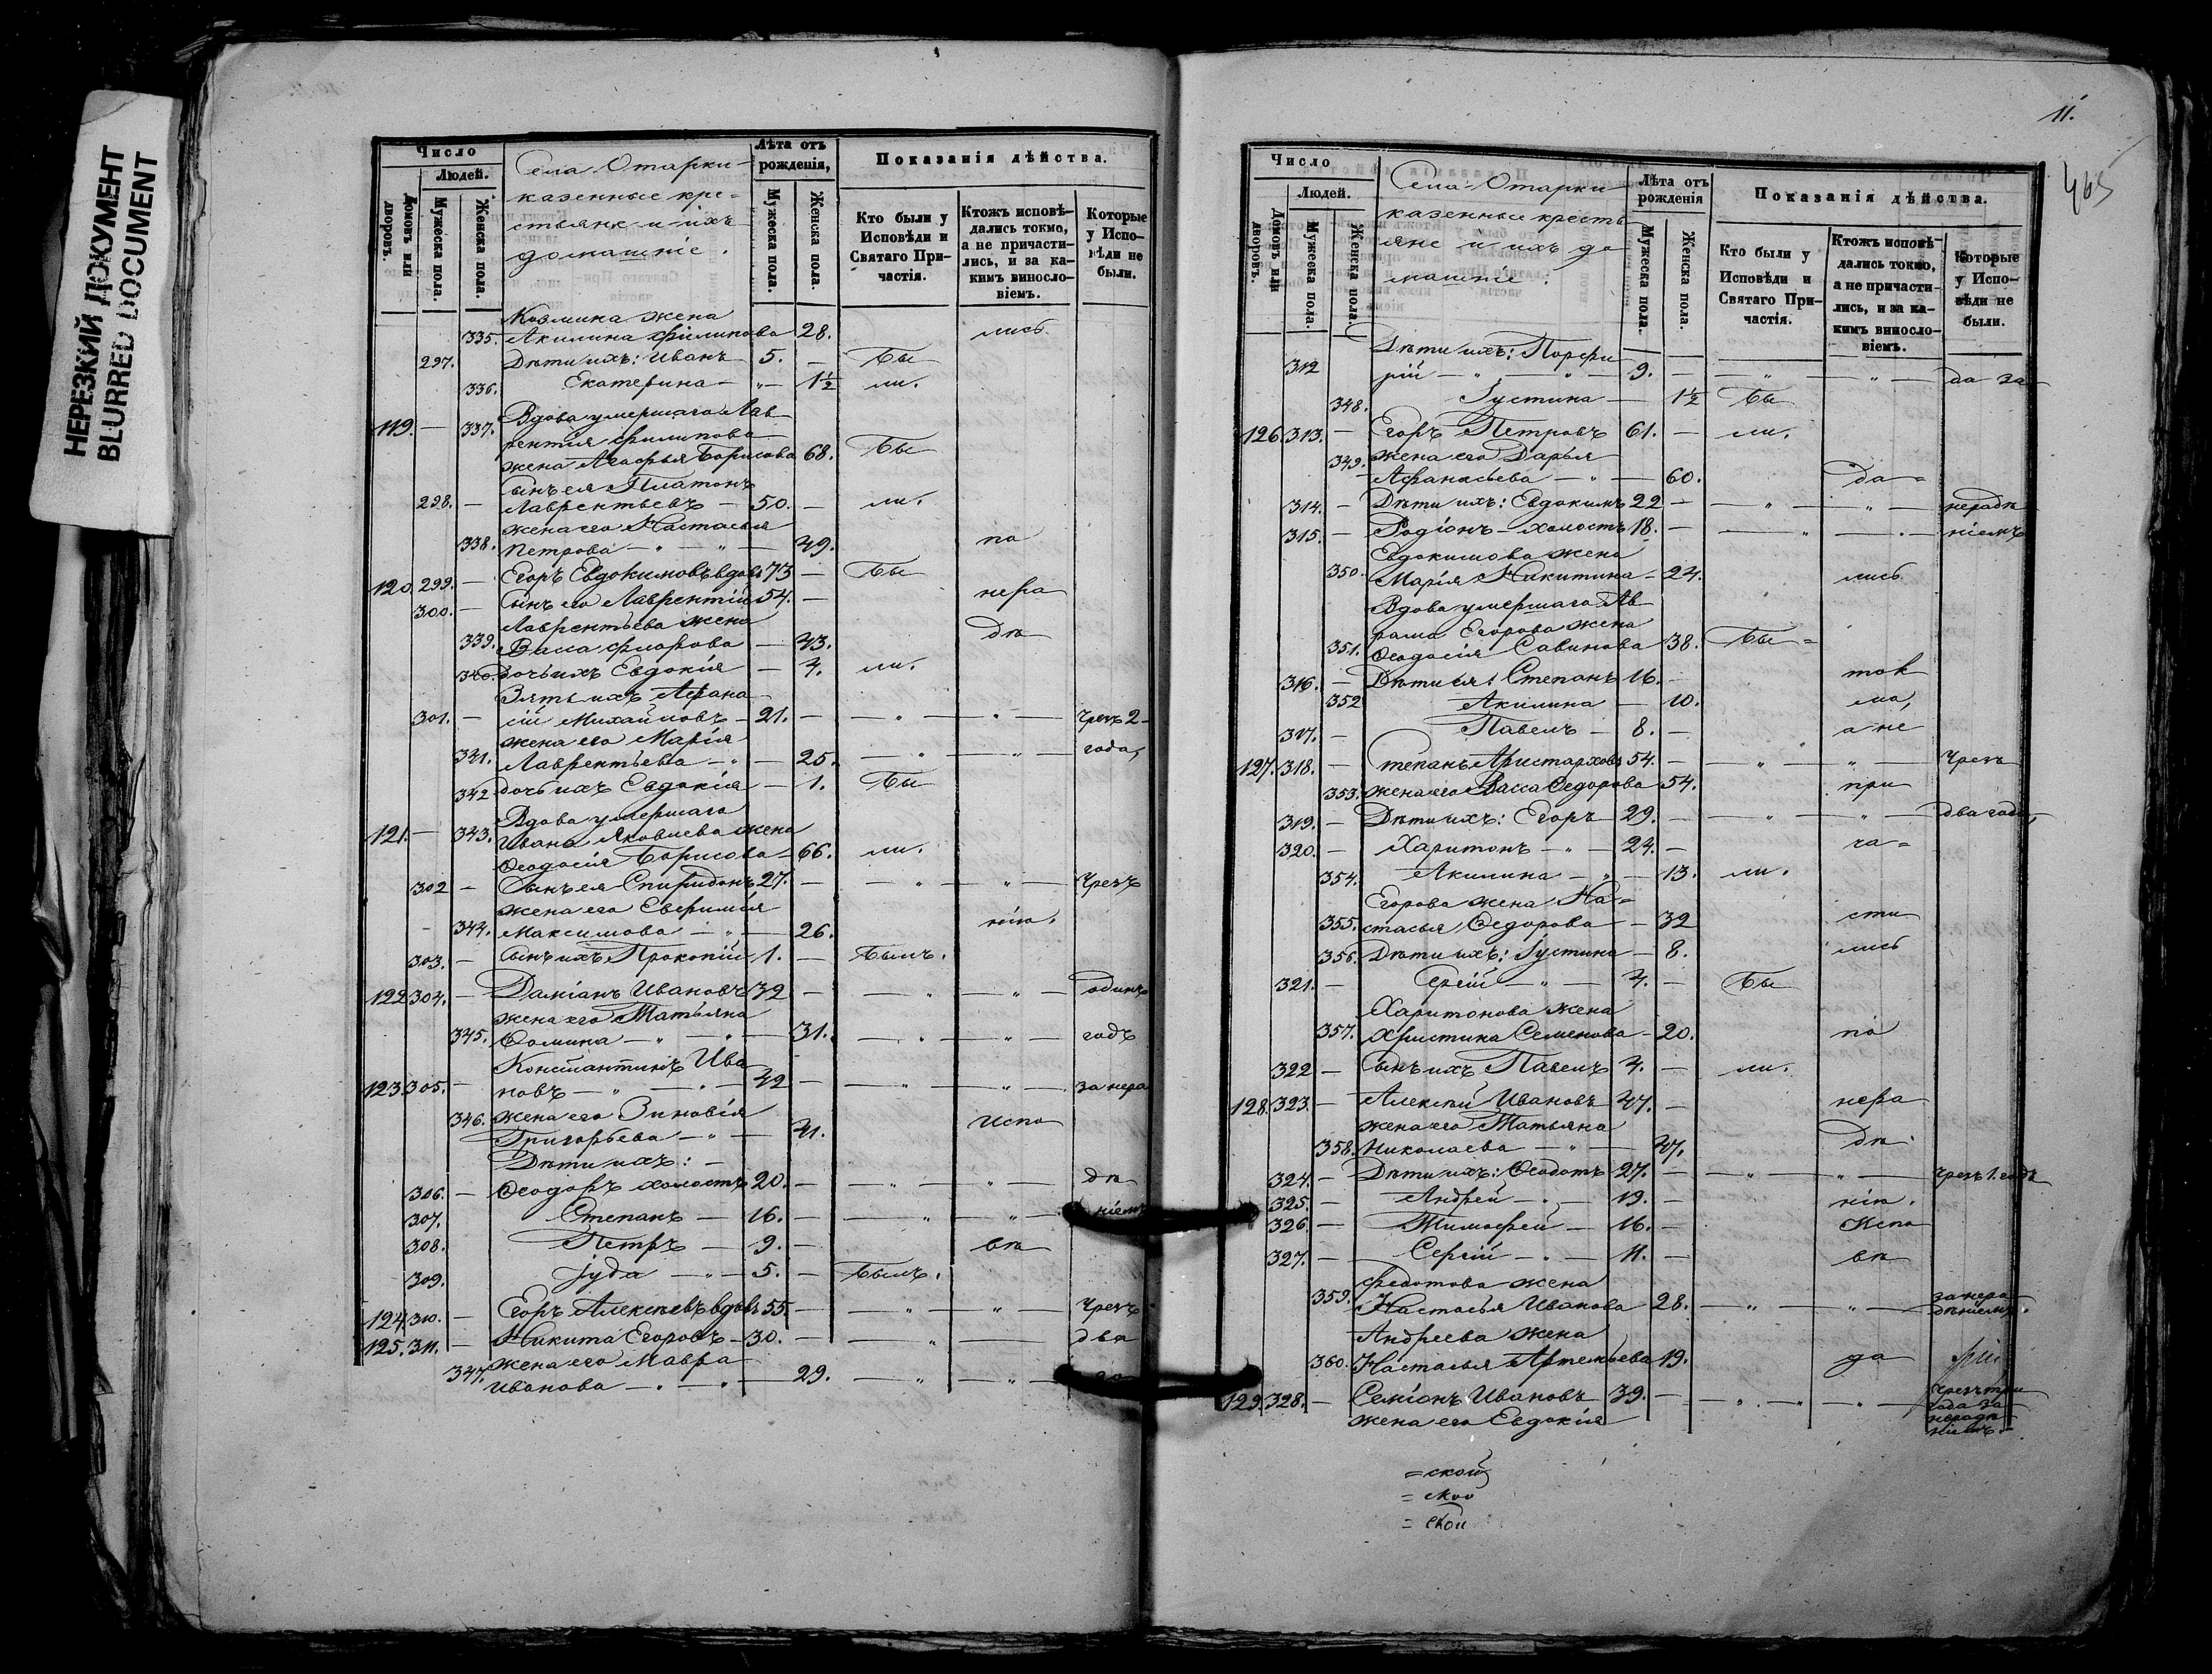 НЕРЕЗКИЙ ДОКУМЕНТ
BLURRED DOCUMENT
Число
Людей.
Домовъ или дворовъ.
Мужеска пола.
Женска пола.
Села Отарки
казенные кре-
стьяне и ихъ
домашніе.
Лѣта отъ рожденія,
Мужеска пола.
Женска пола.
Показанія дѣйства.
Кто были у Исповѣди и Святаго При-частія.
Ктожъ исповѣ-дались токмо, а не причасти-лись, и за ка-кимъ винослo-віемъ.
Которые у Испо-вѣди не были.
Козмина жена
335. Акилина Филипова 28. лись
297. Дѣти ихъ: Иванъ 5. — Бы
336. Екатерина — 1½ ли.
Вдова умершаго Лав-
119. — 337. рентія Филипова
жена Агафья Борисова 68. Бы
Сынъ ея Платонъ
298. — Лаврентьевъ — 50. — ли.
жена его Настасья
338. Петрова — 49. по
120. 299. — Егоръ Евдокимовъ вдовъ 73 — Бы
300. — Сынъ его Лаврентій 54. — нера
Лаврентьева жена
339. Васса Флорова — 43. дѣ
340. дочь ихъ Евдокія — 4. ли.
Зять ихъ Афана-
301. — сій Михайловъ — 21. — чрезъ 2
жена его Марія
341. Лаврентьева — 25. — года,
342 дочь ихъ Евдокія — 1. Бы
Вдова умершаго
121. — 343. Ивана Яковлева жена
Ѳеодосія Борисова — 66. ли.
302 — Сынъ ея Спиридонъ 27. — чрезъ
жена его Евфимія
344. Максимова — 26. нію.
303. — Сынъ ихъ Прокопій 1. — Былъ.
122 304. — Даміанъ Ивановъ 32 — одинъ
жена его Татьяна
345. Ѳомина — 31. — годъ
Константинъ Ива-
123. 305. — новъ — 42 — за нера
346. жена его Зиновія
Григорьева — 41. испо
Дѣти ихъ: —
306. — Ѳеодоръ холостъ 20. — дѣ
307. Степанъ — 16. — ніемъ
308. Петръ — 9. — вѣ
309. Іуда — 5. — Былъ.
124. 310. — Егоръ Алексѣевъ вдовъ 55. — чрезъ
125. 311. — Никита Егоровъ — 30. — два
347. жена его Мавра
Иванова — 29. —
11.
465
Число
Людей.
Домовъ или дворовъ.
Мужеска пола.
Женска пола.
Села Отарки
казенные кресть-
яне и ихъ до
машніе.
Лѣта отъ рожденія
Мужеска пола.
Женска пола.
Показанія дѣйства.
Кто были у Исповѣди и Святаго При-частія.
Ктожъ исповѣ-дались токмо, а не причасти-лись, и за ка-кимъ винослo-віемъ.
Которые у Испо-вѣди не были.
Дѣти ихъ: Порфи
312 рій — 9. — да за
348. Іустина — 1½ Бы
126 313. — Егоръ Петровъ 61. — ли.
349. жена его Дарья
Афанасьева — 60. да
314. — Дѣти ихъ: Евдокимъ 22 — нерадѣ
315. — Родіонъ — холостъ 18. — ніемъ
Евдокимова жена
350. Марія Никитина — 24. лись
Вдова умершаго Ав
рама Егорова жена
351. Ѳеодосія Савинова 38. Бы
316. — Дѣти ея: Степанъ 16. — ток
352 Акилина — 10. мо,
317. — Павелъ — 8. — а не
127. 318. — Степанъ Аристарховъ 54. — чрезъ
353. жена его Васса Ѳедорова 54. при
319. — Дѣти ихъ: Егоръ 29. — два года,
320. — Харитонъ — 24. — ча
354. Акилина — 13. ли.
Егорова жена На
355. стасья Ѳедорова — 32 сти
356. Дѣти ихъ: Іустина — 8. лись
321. — Сергій — 4. — Бы
Харитонова жена
357. Христина Семенова — 20. по
322 — Сынъ ихъ Павелъ 4. — ли.
128. 323. — Алексѣй Ивановъ 47. — нера
жена его Татьяна
358. Николаева — 47. дѣ
324. — Дѣти ихъ: Ѳеодотъ 27. — чрезъ 1. годъ
325. — Андрей — 19. — нію.
326 — Тимофей — 16. — Испо
327. — Сергій — 11. — вѣ
Федотова жена
359. Настасья Иванова 28. — за нера
дѣніемъ.
Андреева жена
360. Настасья Артемьева 19. да
129. 328. — Семіонъ Ивановъ 39. — чрезъ три
года за
нерадѣ
ніемъ
жена его Евдокія
= ской
= ско
= ской